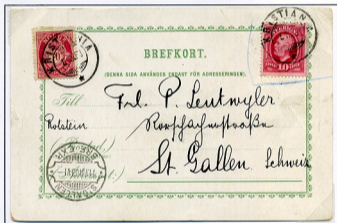 KRISTIANIA
KRISTIANIA
10
BREFKORT.
(DENNA SIDA ANVÄNDES ENDAST FÖR ADRESSERINGEN).
Till
Frl. P. Leutwyler
Rolstein
Rorschacherstraße
St. Gallen Schweiz
ST. GALLEN